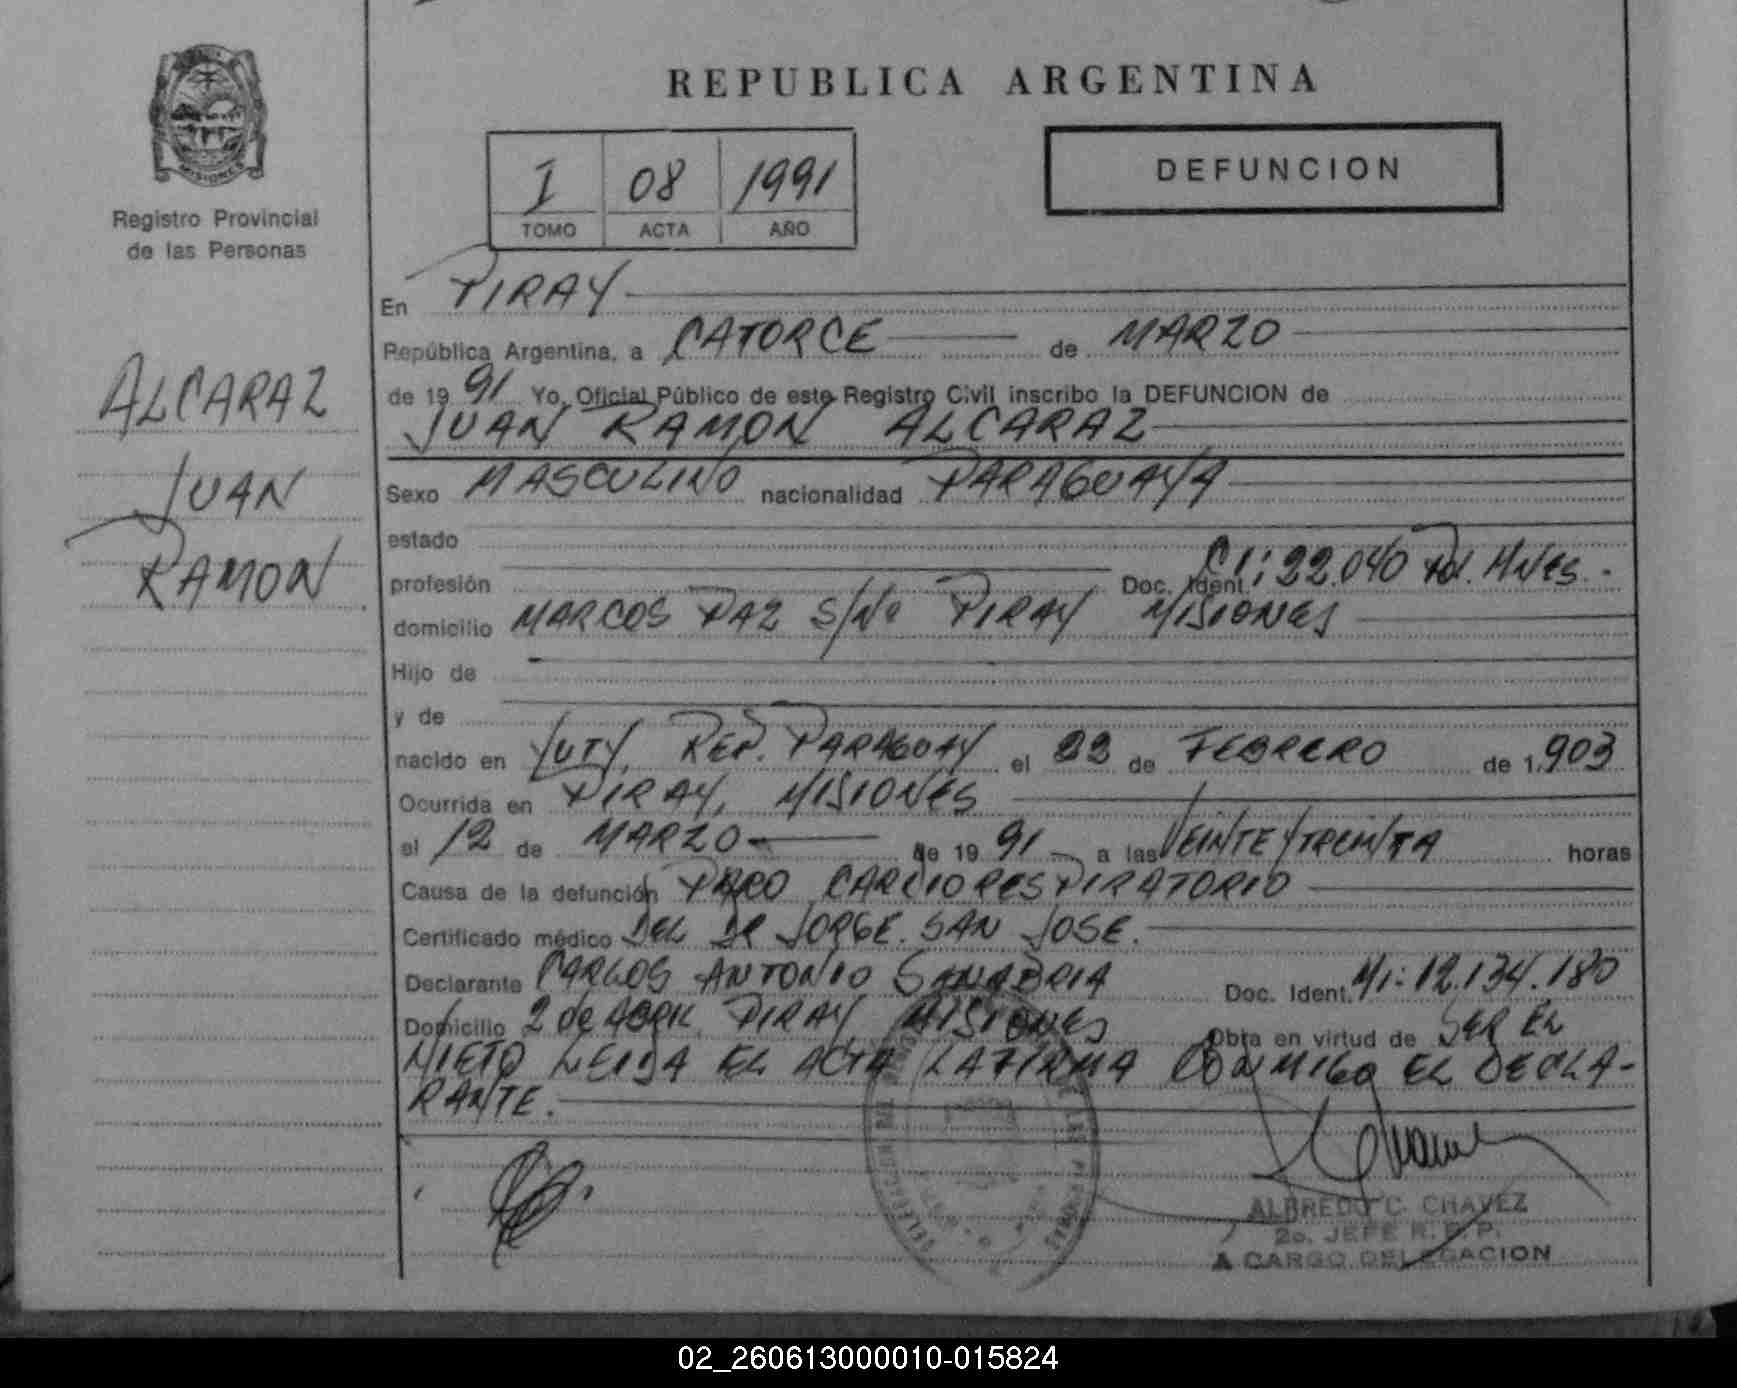 REPUBLICA ARGENTINA
MISIONES
Registro Provincial
de las Personas
I 08 1991
TOMO ACTA AÑO
DEFUNCION
ALCARAZ
JUAN
RAMON
En PIRAY
República Argentina, a CATORCE de MARZO
de 19 91 Yo, Oficial Público de este Registro Civil inscribo la DEFUNCION de
JUAN RAMON ALCARAZ
Sexo MASCULINO nacionalidad PARAGUAYA
estado
profesión Doc. Ident. CI: 22.040 Pol. Mnes.-
domicilio MARCOS PAZ S/Nº PIRAY MISIONES
Hijo de
y de
nacido en YUTY, REP. PARAGUAY el 22 de FEBRERO de 1.903
Ocurrida en PIRAY, MISIONES
el 12 de MARZO de 19 91 a las VEINTE Y TREINTA horas
Causa de la defunción PARO CARDIORESPIRATORIO
Certificado médico DEL DR JORGE SAN JOSE.
Declarante CARLOS ANTONIO SANABRIA Doc. Ident. MI: 12.134.180
Domicilio 2 de ABRIL PIRAY MISIONES Obra en virtud de SER EL
NIETO LEIDA EL ACTA LA FIRMA CONMIGO EL DECLA-
RANTE.
ALBREDO C. CHAVEZ
2o. JEFE R. P. P.
A CARGO DELEGACION
02_260613000010-015824